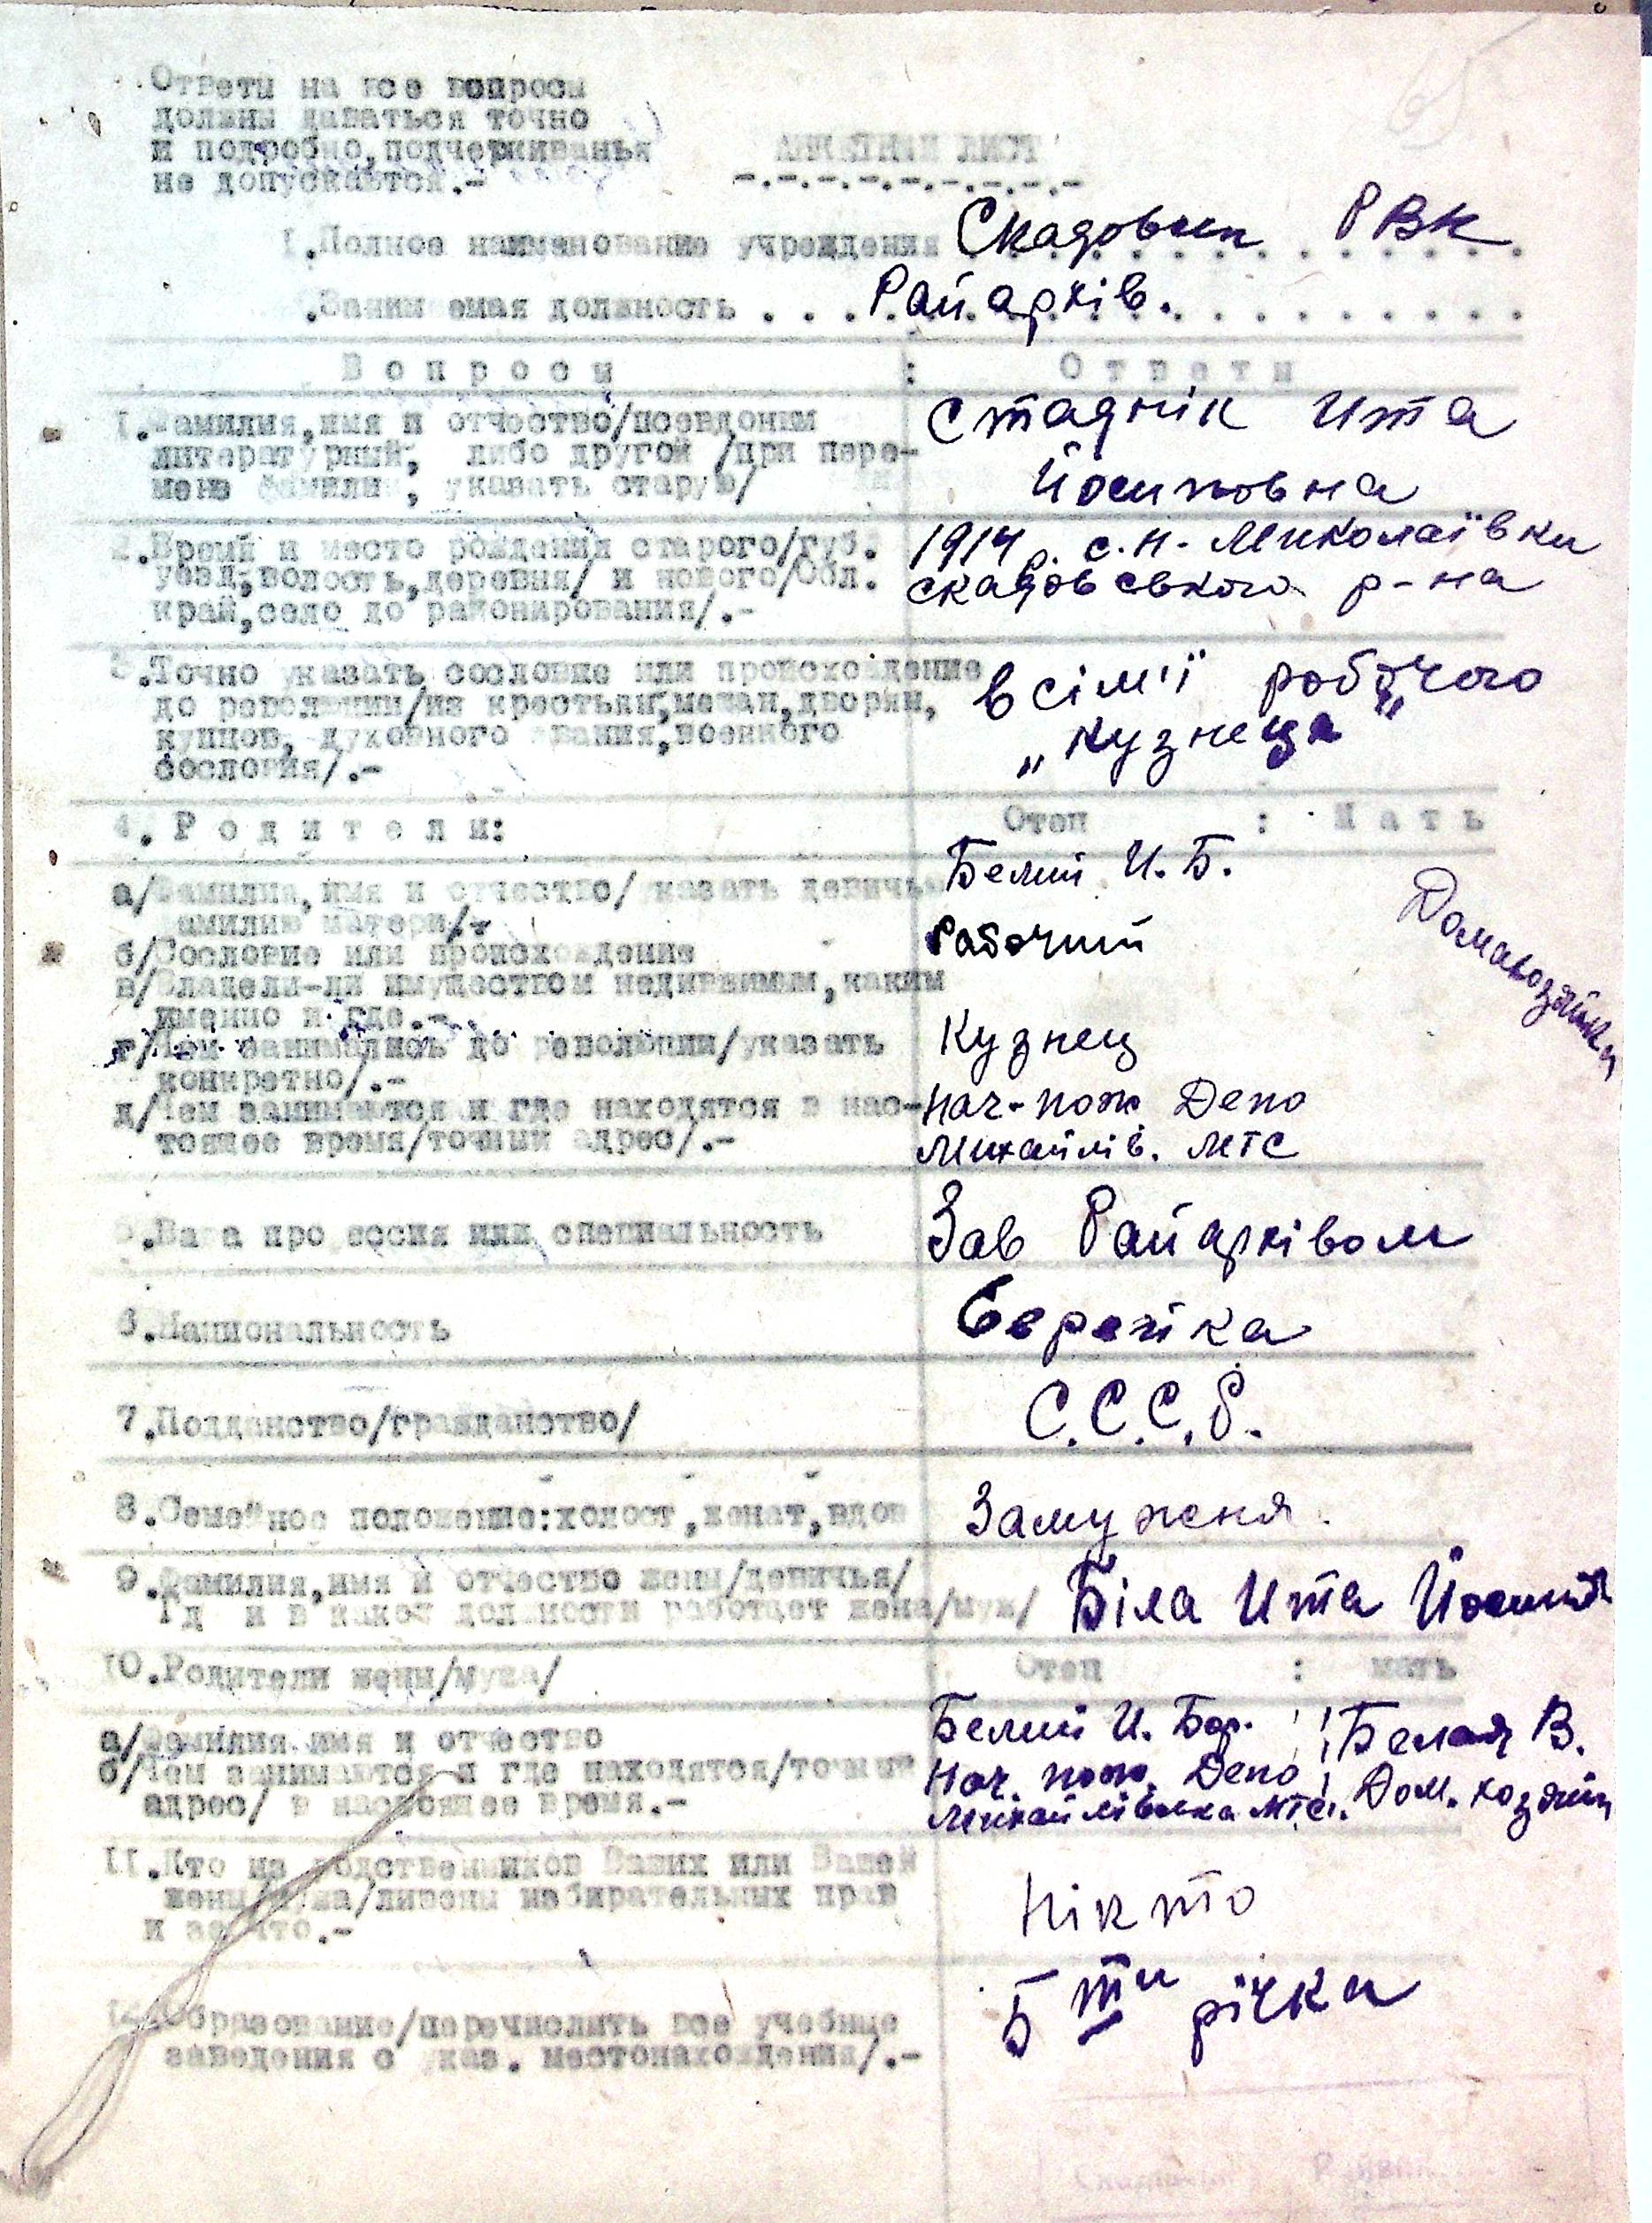 Ответы на все вопросы
должны даваться точно
и подробно, подчеркиванья
не допускается.-
АНКЕТНЫЙ ЛИСТ
1. Полное наименование учреждения Скадовськ РВК
Занимаемая должность . . . Райархів.
Вопросы : Ответы
1. Фамилия, имя и отчество/псевдоним Стаднік Ита
литературный, либо другой /при пере- Йосиповна
мене фамилии, указать старую/
2. Время и место рождения старого/губ. 1914 р. с. Н-Миколаївки
уезд, волость, деревня/ и нового/Обл. скадовського р-на
край, село до районирования/.-
3. Точно указать сословие или происхождение в сім'ї робочого
до революции/из крестьян, мещан, дворян, „кузнеца"
купцов, духовного звания, военного
сословия/.-
4. Родители: Отец : Мать
а/Фамилия, имя и отчество/ указать девичью Белий И. Б.
фамилию матери/.- Домахозяйка
б/Сословие или происхождение Рабочий
в/Владели-ли имуществом недвижимым, каким
именно и где.-
г/Чем занимались до революции/указать Кузнец
конкретно/.-
д/Чем занимаются и где находятся в нас- Нач-пож Депо
тоящее время/точный адрес/.- Михайлів. МТС
5. Ваша профессия или специальность Зав Райархівом
6. Национальность Єврейка
7. Подданство/гражданство/ С.С.С.Р.
8. Семейное положение: холост, женат, вдов Замужня.
9. Фамилия, имя и отчество жены/девичья/ Біла Ита
Где и в какой должности работает жена/муж/
10. Родители жены/мужа/ Отец : мать
а/Фамилия имя и отчество Белий И. Бор. Белая В.
б/Чем занимаются и где находятся/точный Нач. пож. Депо Дом. хозяйк
адрес/ в настоящее время.- Михайлівська МТС.
11. Кто из родственников Ваших или Вашей
жены/мужа/лишены избирательных прав Нікто
и за что.-
12. Образование/перечислить все учебные 5 ти річка
заведения с указ. местонахождения/.-